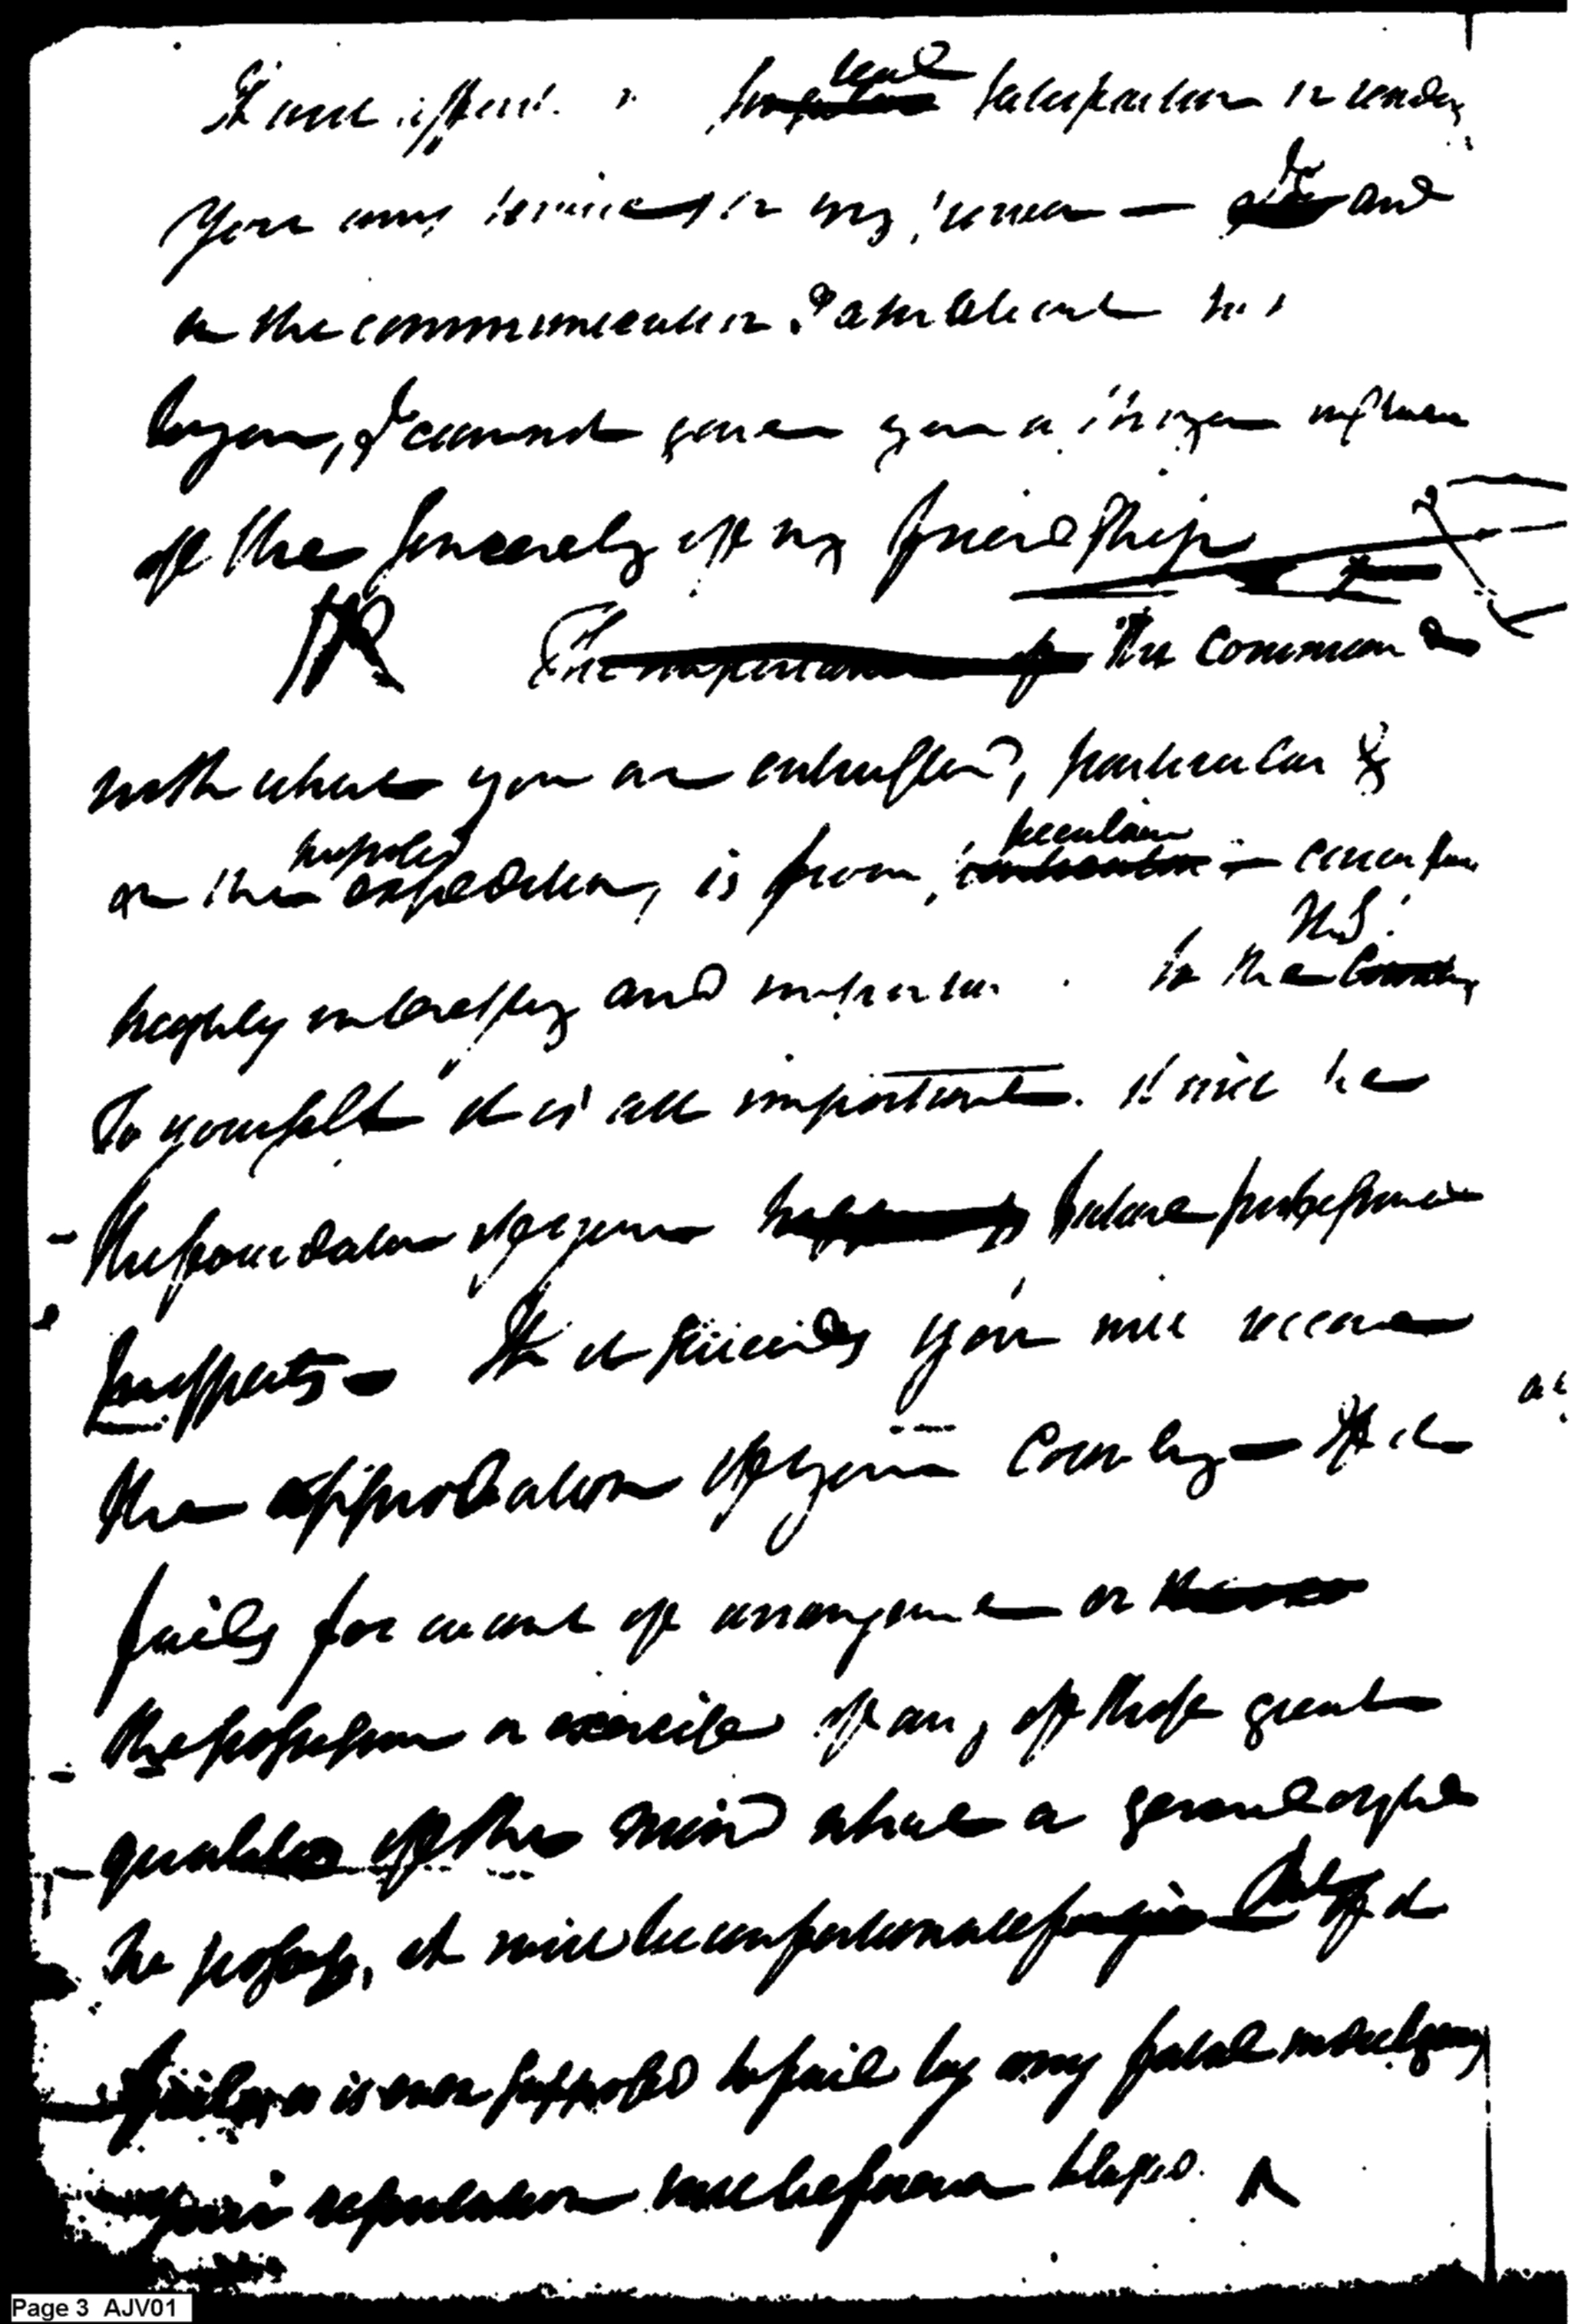 It will afford real satisfaction in rendg
you any service in my power — and
on the communication I am about
to you, I cannot give you a stronger
of the sincerity of my friendship
The command
with which you are entrusted, particularly
on the proposed expedition, is from peculiar causes
highly interesting and important to the U.S.
To yourself it is all important. It will be
the foundation of your future
prospects — If it succeeds you will receive
the approbation of your Country — If it
fails for want of arrangement or
the possession or exercise of any of those great
qualities of the mind which a general ought
to possess, it will be unfortunate But if it
is ever supposed to fail by any fatal indulgence
your reputation will be forever blasted.
Page 3 AJV01